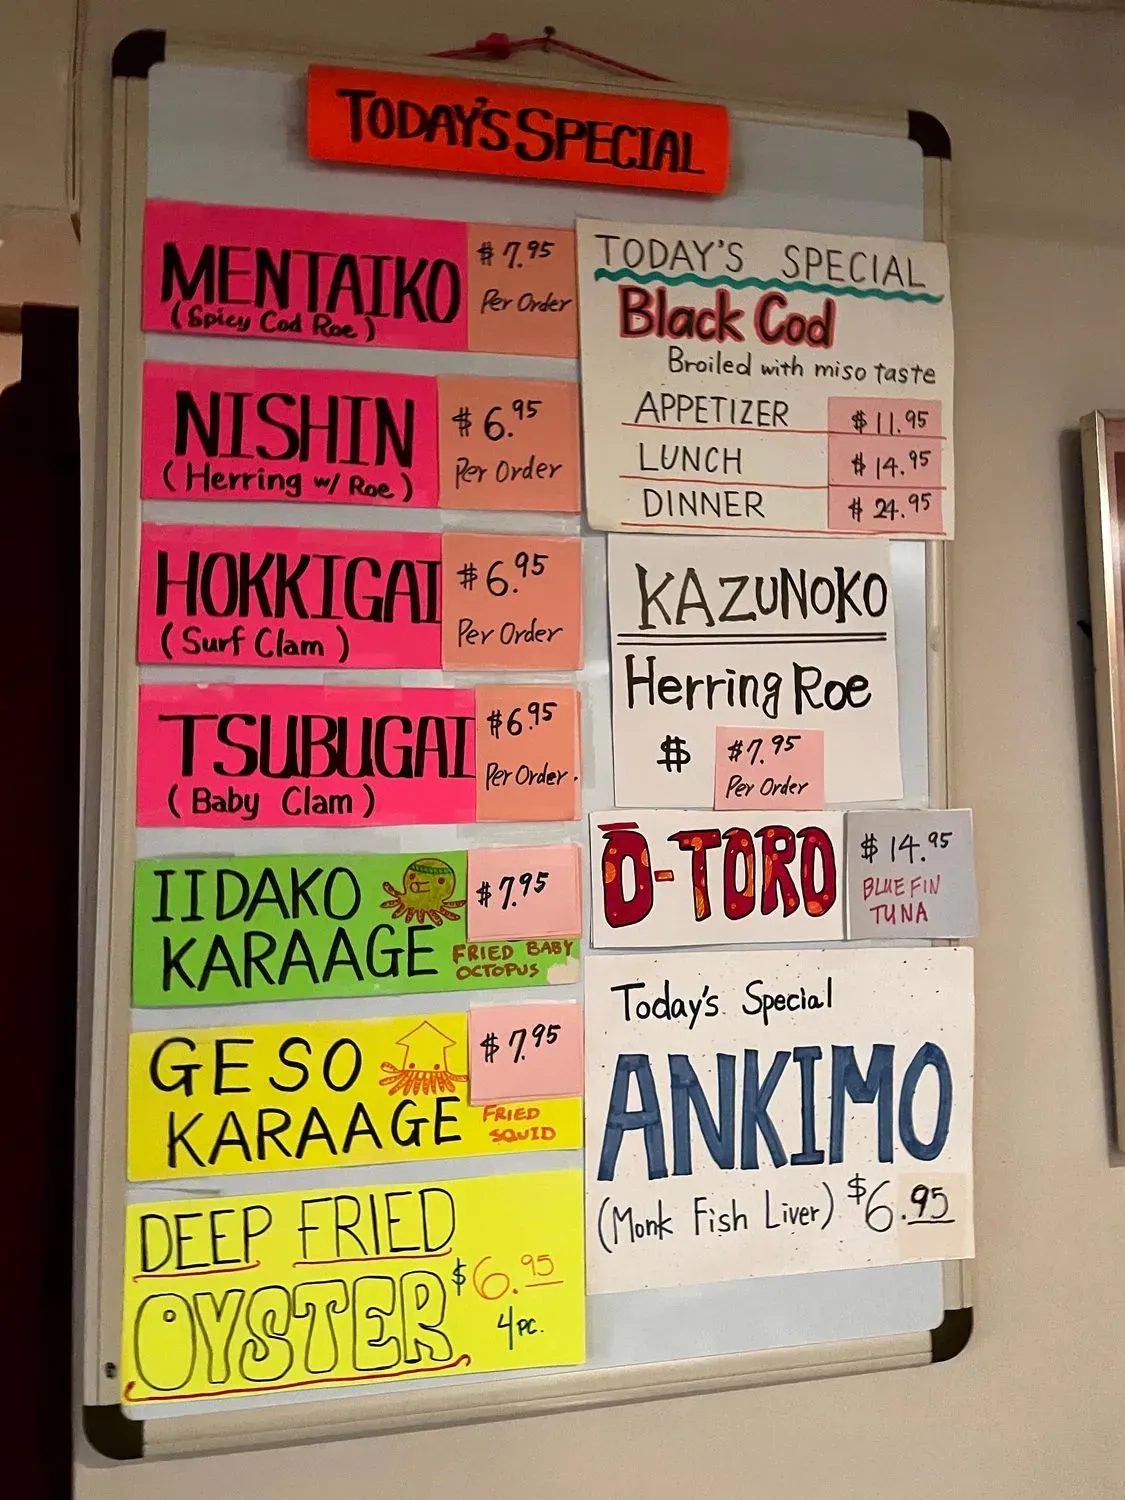 TODAY'S SPECIAL
MENTAIKO
(Spicy Cod Roe)
$7.95
Per Order
NISHIN
(Herring w/ Roe)
$6.95
Per Order
HOKKIGAI
(Surf Clam)
$6.95
Per Order
TSUBUGAI
(Baby Clam)
$6.95
Per Order.
IIDAKO
KARAAGE
$7.95
FRIED BABY
OCTOPUS
GESO
KARAAGE
$7.95
FRIED
SQUID
DEEP FRIED
OYSTER
$6.95
4PC.
TODAY'S SPECIAL
Black Cod
Broiled with miso taste
APPETIZER $11.95
LUNCH $14.95
DINNER $24.95
KAZUNOKO
Herring Roe
$ $7.95
Per Order
O-TORO
$14.95
BLUE FIN
TUNA
Today's Special
ANKIMO
(Monk Fish Liver) $6.95